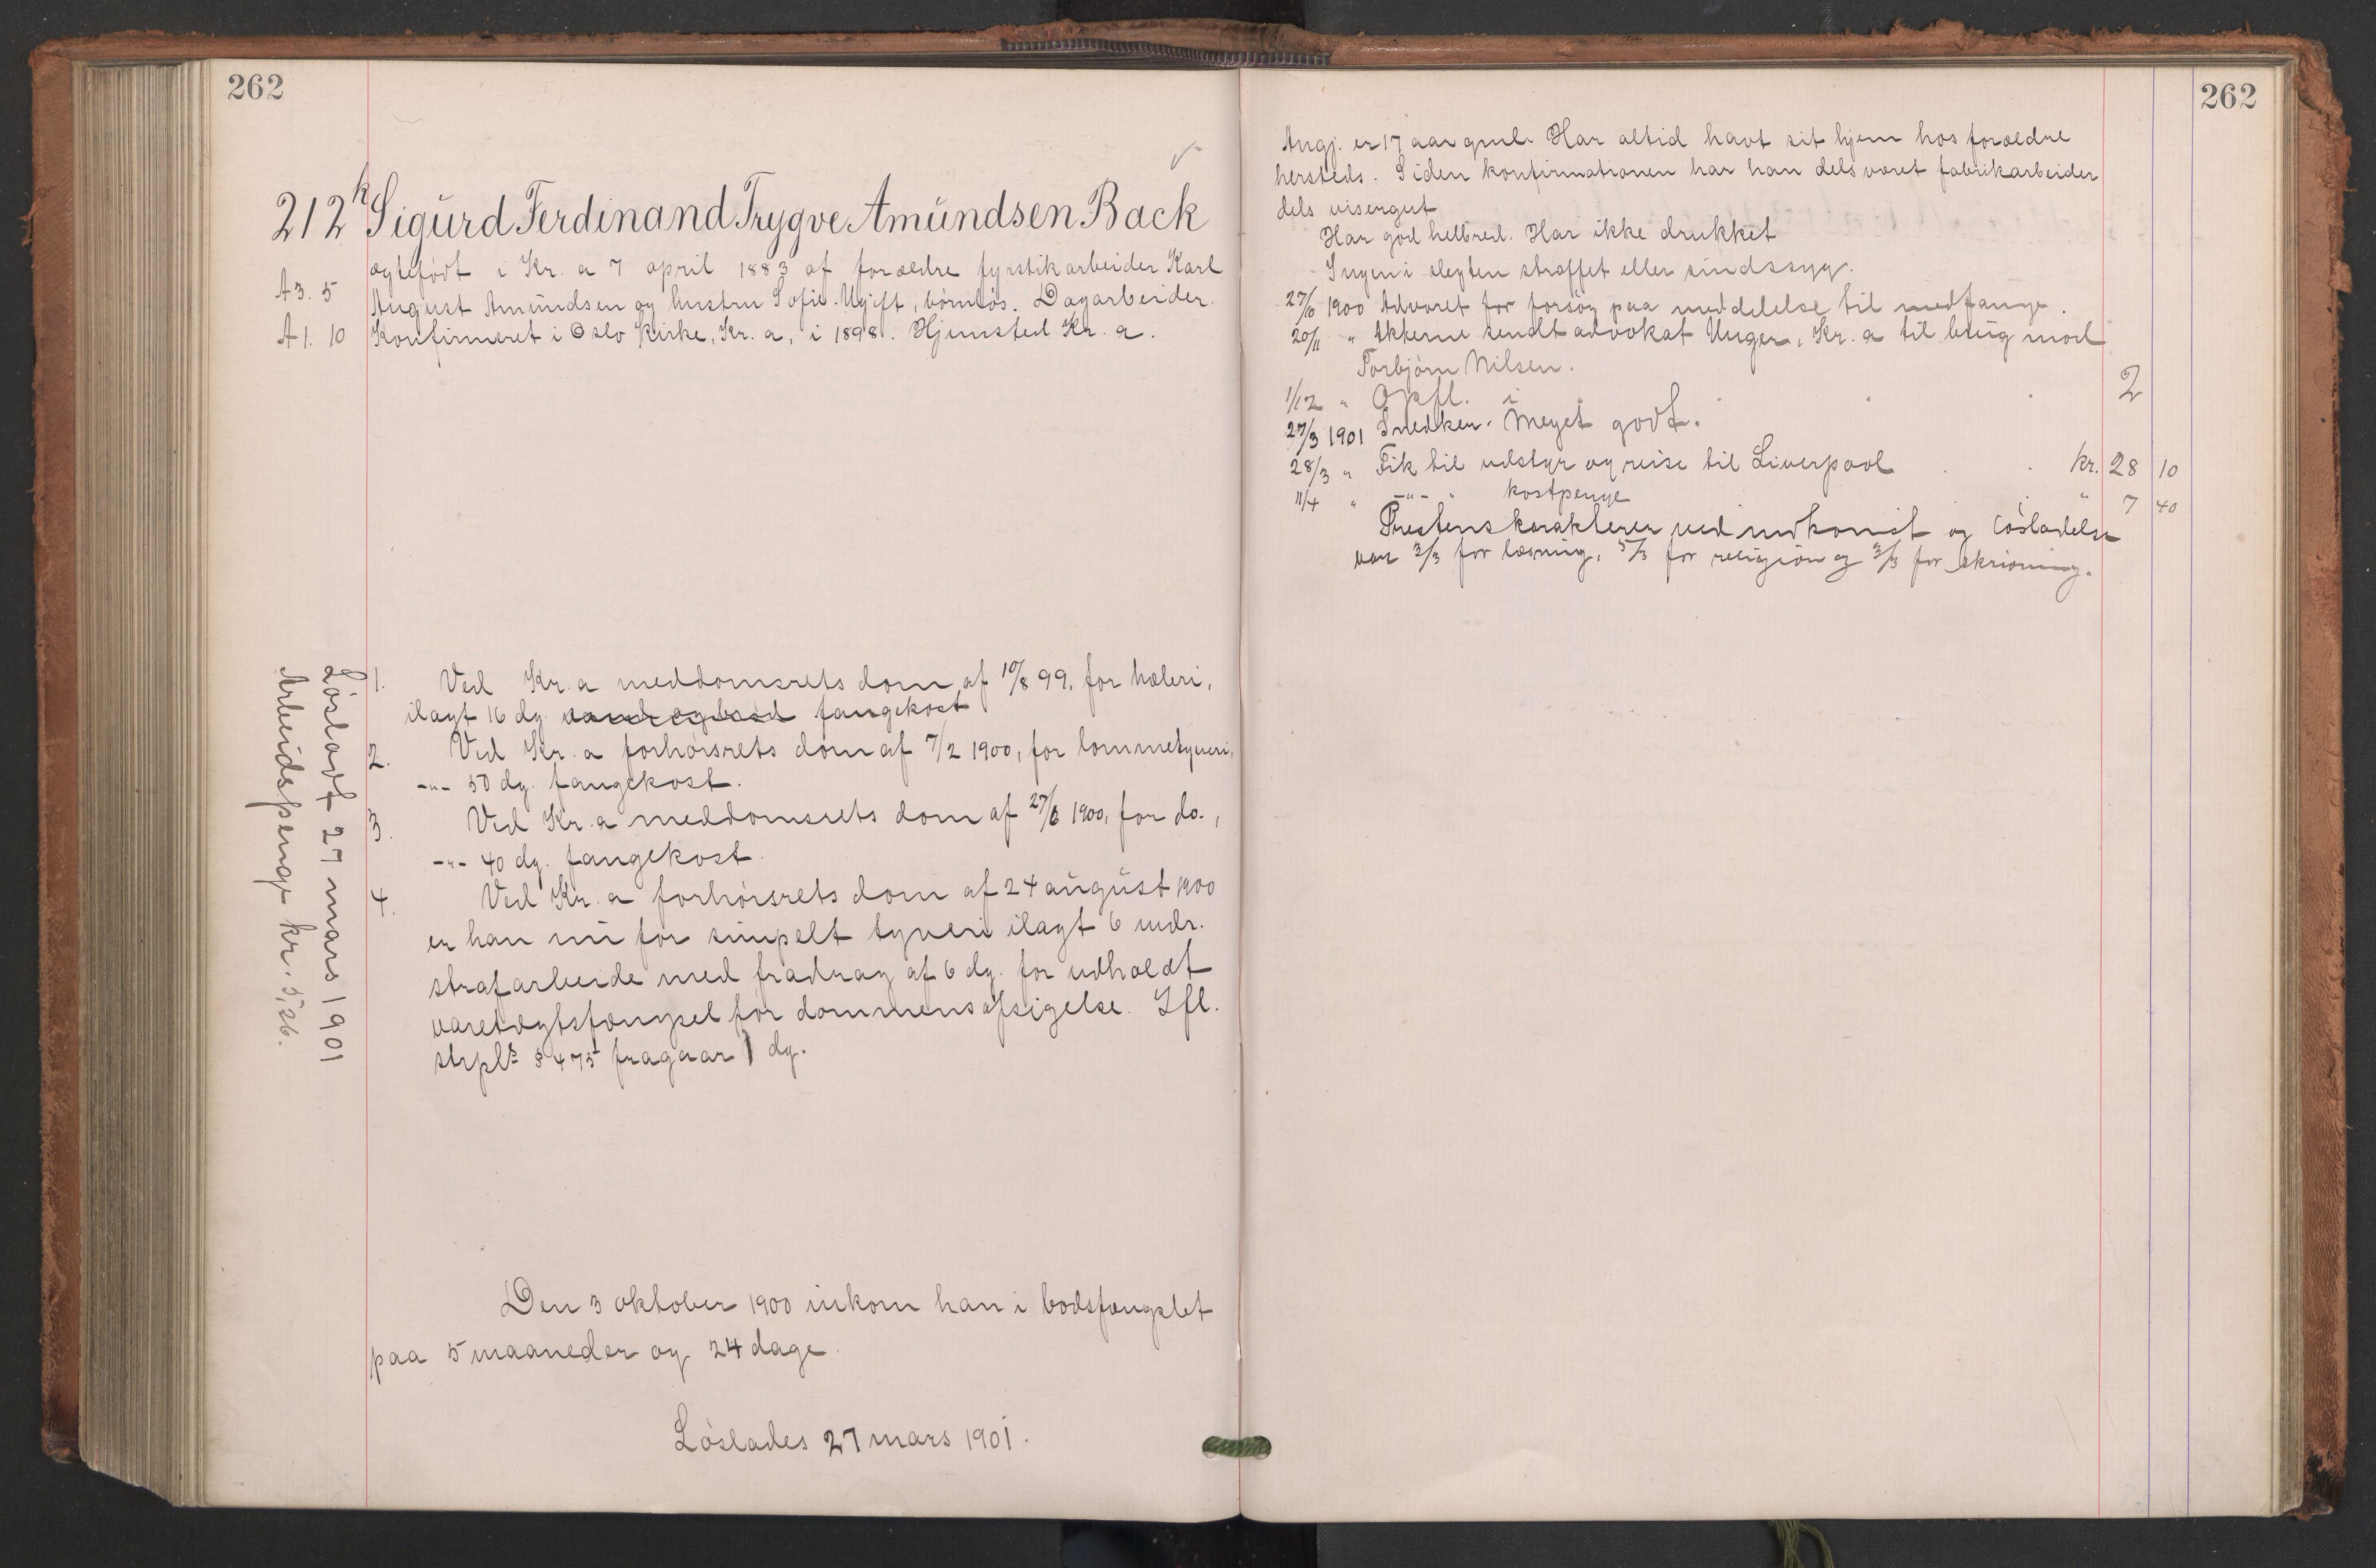 262
212 k Sigurd Ferdinand Trygve Amundsen Back
ægtefødt i Kr.a 7 april 1883 af forældre fyrstikarbeider Karl
A3. 5 August Amundsen og hustru Sofie. Ugift, børnløs. Dagarbeider.
A1. 10 Konfirmeret i Oslo Kirke, Kr.a, i 1898. Hjemsted Kr.a.
1. Ved Kr.a meddomsrets dom af 10/8 99, for hæleri,
ilagt 16 dg. vand og brød fangekost
2. Ved Kr.a forhørsrets dom af 7/2 1900, for lommetyveri,
-"- 50 dg. fangekost.
3. Ved Kr.a meddomsrets dom af 27/6 1900, for do.,
-"- 40 dg. fangekost.
4. Ved Kr.a forhørsrets dom af 24 august 1900
er han nu for simpelt tyveri ilagt 6 mdr.
strafarbeide med fradrag af 6 dg. for udholdt
varetægtsfængsel før dommens afsigelse. Ifl.
strpl§ § 475 fragaar 1 dg.
Løsladt 27 mars 1901
Arbeidspenge kr. 5,26.
Den 3 oktober 1900 inkom han i bodsfængslet
paa 5 maaneder og 24 dage.
Løslades 27 mars 1901.
262
Angj. er 17 aar gml. Har altid havt sit hjem hos forældre
hersteds. Siden konfirmationen har han dels været fabrikarbeider
dels visergut
Har god helbred. Har ikke drukket
Ingen i slegten straffet eller sindssyg.
27/10 1900 Advaret for forsøg paa meddelelse til medfange.
20/11 " Akterne sendt advokat Unger, Kr.a til brug mod
Torbjørn Nilsen.
1/12 " Opfl. i . . . 2
27/3 1901 Snedker. Meget godt.
28/3 " Fik til udstyr og reise til Liverpool . . kr. 28 10
11/4 " -"- " kostpenge " 7 40
Prestens karakterer ved indkomst og løsladelse
var 3/3 for læsning, 5/3 for religion og 3/3 for skrivning.